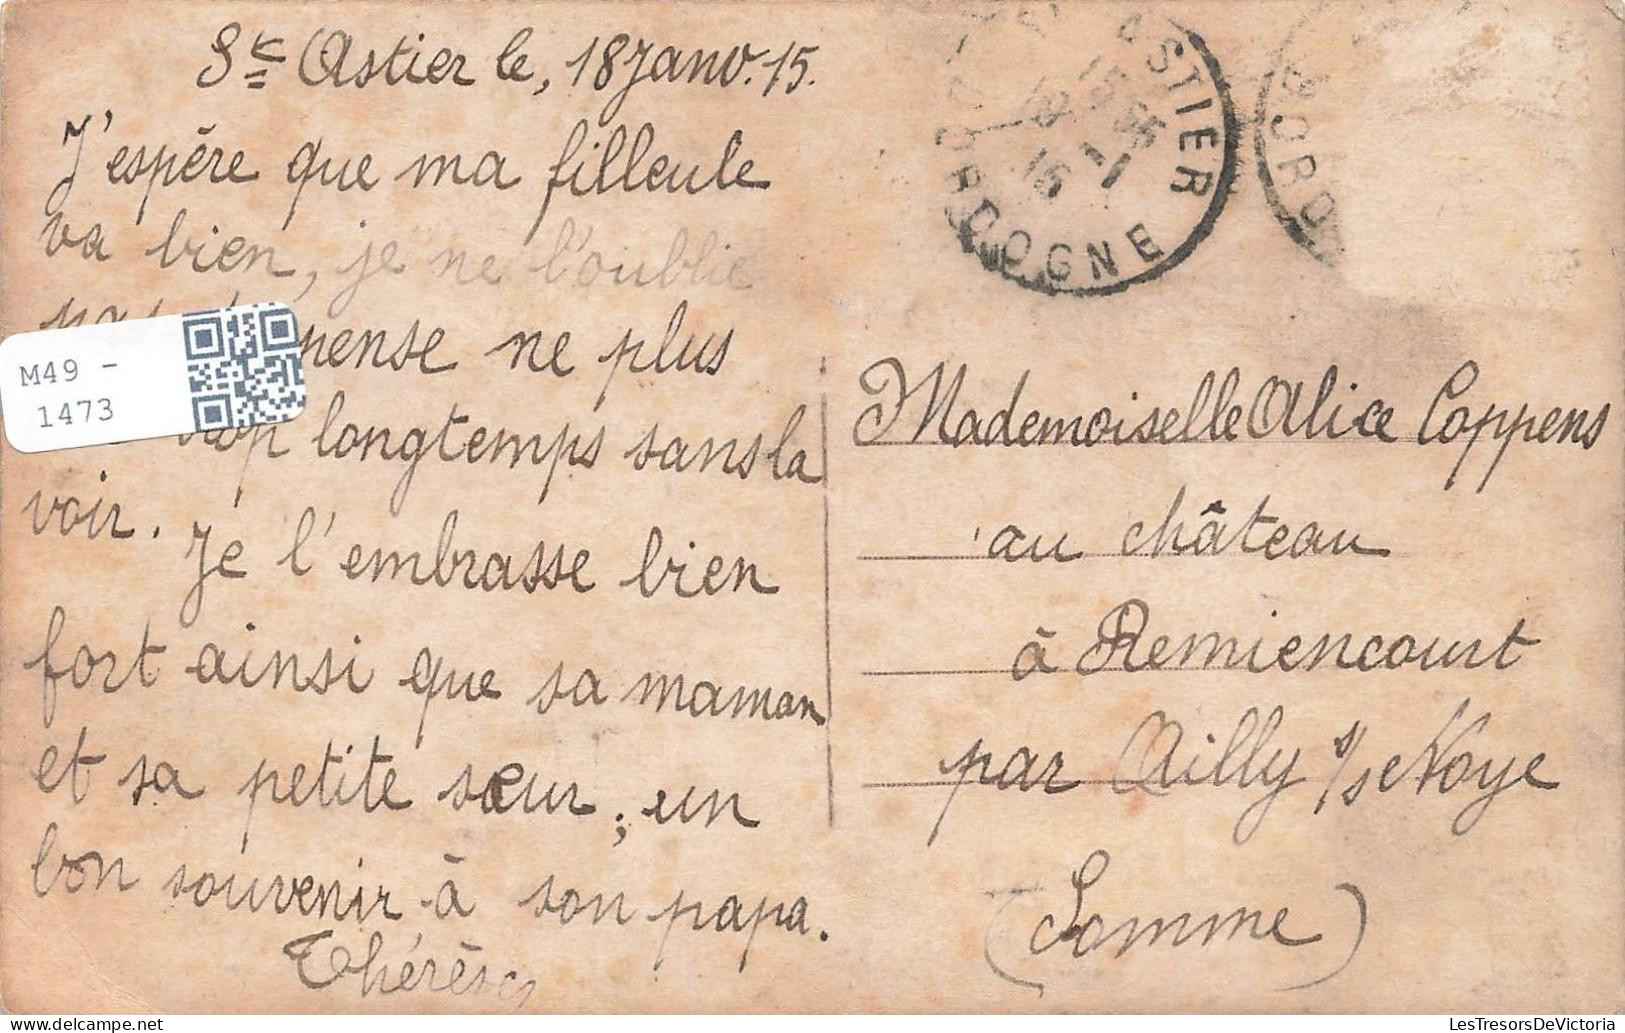 St Astier le, 18 Janv. 15.
J'espère que ma filleule
va bien, je ne l'oublie
pense ne plus
trop longtemps sans la
voir. Je l'embrasse bien
fort ainsi que sa maman
et sa petite sœur, un
bon souvenir à son papa.
Thérèse
M49 -
1473
ASTIER
DORDOGNE
DORDO
Mademoiselle Alice Coppens
au château
à Remiencourt
par Ailly s/s Noye
(Somme)
LesTresorsDeVictoria